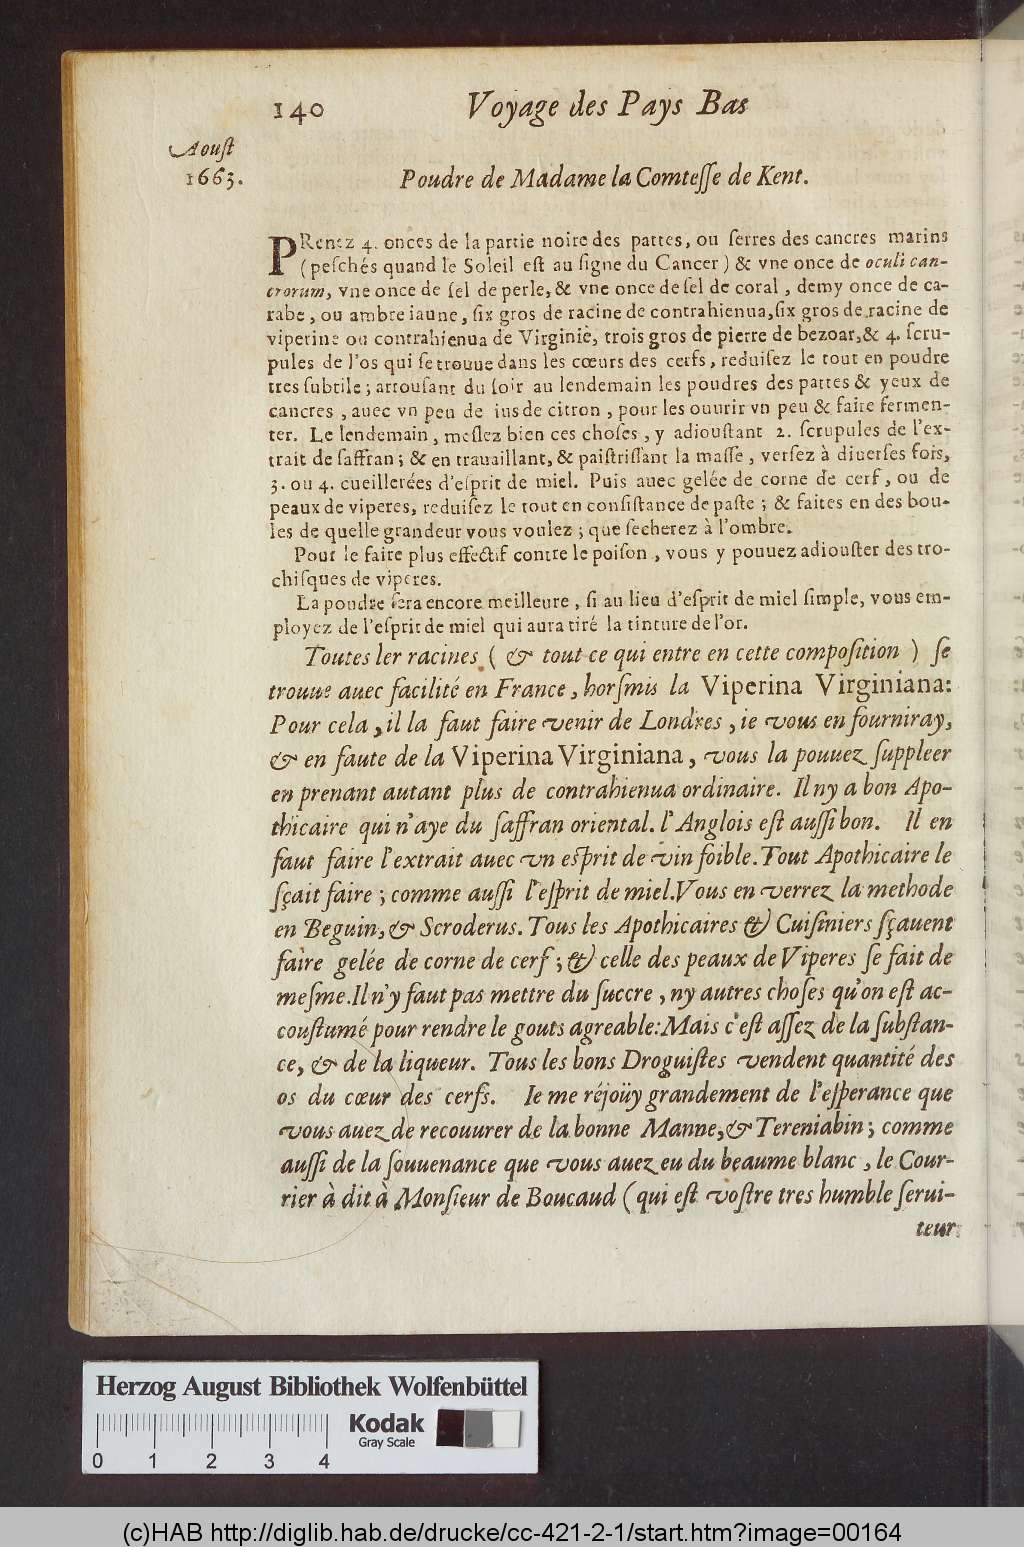 140 Voyage des Pays Bas
Aoust
1663.
Poudre de Madame la Comtesse de Kent.
PRenez 4. onces de la partie noire des pattes, ou serres des cancres marins
(peschés quand le Soleil est au signe du Cancer) & vne once de oculi can-
crorum, vne once de sel de perle, & vne once de sel de coral, demy once de ca-
rabe, ou ambre iaune, six gros de racine de contrahienua, six gros de racine de
viperine ou contrahienua de Virginie, trois gros de pierre de bezoar, & 4. scru-
pules de l'os qui se trouue dans les cœurs des cerfs, reduisez le tout en poudre
tres subtile; arrousant du soir au lendemain les poudres des pattes & yeux de
cancres, auec vn peu de ius de citron, pour les ouurir vn peu & faire fermen-
ter. Le lendemain, meslez bien ces choses, y adioustant 2. scrupules de l'ex-
trait de saffran; & en trauaillant, & paistrissant la masse, versez à diuerses fois,
3. ou 4. cueillerées d'esprit de miel. Puis auec gelée de corne de cerf, ou de
peaux de viperes, reduisez le tout en consistance de paste; & faites en des bou-
les de quelle grandeur vous voulez; que secherez à l'ombre.
Pour le faire plus effectif contre le poison, vous y pouuez adiouster des tro-
chisques de viperes.
La poudre sera encore meilleure, si au lieu d'esprit de miel simple, vous em-
ployez de l'esprit de miel qui aura tiré la tincture de l'or.
Toutes ler racines (& tout ce qui entre en cette composition) se
trouue auec facilité en France, horsmis la Viperina Virginiana:
Pour cela, il la faut faire venir de Londres, ie vous en fourniray,
& en faute de la Viperina Virginiana, vous la pouuez suppleer
en prenant autant plus de contrahienua ordinaire. Il ny a bon Apo-
thicaire qui n'aye du saffran oriental. l'Anglois est aussi bon. Il en
faut faire l'extrait auec vn esprit de vin foible. Tout Apothicaire le
sçait faire; comme aussi l'esprit de miel. Vous en verrez la methode
en Beguin, & Scroderus. Tous les Apothicaires & Cuisiniers sçauent
faire gelée de corne de cerf; & celle des peaux de Viperes se fait de
mesme. Il n'y faut pas mettre du succre, ny autres choses qu'on est ac-
coustumé pour rendre le gouts agreable: Mais c'est assez de la substan-
ce, & de la liqueur. Tous les bons Droguistes vendent quantité des
os du cœur des cerfs. Ie me réjoüy grandement de l'esperance que
vous auez de recouurer de la bonne Manne, & Tereniabin; comme
aussi de la souuenance que vous auez eu du beaume blanc, le Cour-
rier à dit à Monsieur de Boucaud (qui est vostre tres humble serui-
teur
Herzog August Bibliothek Wolfenbüttel
Kodak
Gray Scale
0 1 2 3 4
(c)HAB http://diglib.hab.de/drucke/cc-421-2-1/start.htm?image=00164